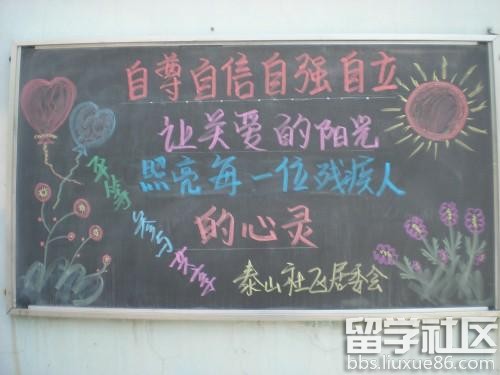 自尊自信自强自立
让关爱的阳光
照亮每一位残疾人
的心灵
平等
参与
共享
泰山社区居委会
留学社区
bbs.liuxue86.com